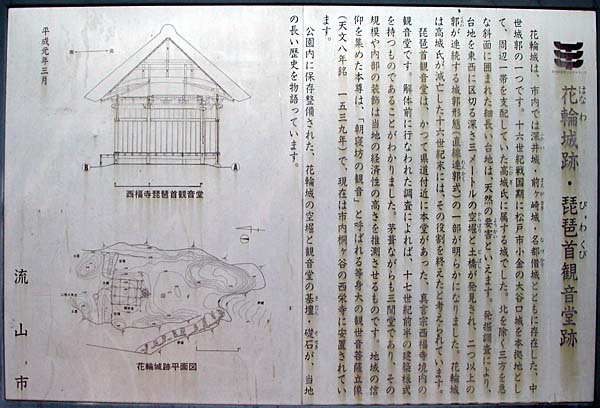 花輪城跡・琵琶首観音堂跡
はなわ
びわくび
花輪城は、市内では深井城・前ヶ崎城・名都借城とともに存在した、中
世城郭の一つです。十六世紀戦国期に松戸市小金の大谷口城を本拠地とし
て、周辺一帯を支配していた高城氏に属する城でした。北を除く三方を急
な斜面に囲まれた細長い台地は、天然の要害といえます。発掘調査により、
台地を東西に区切る深さ三メートルの空堀と土橋が発見され、二つ以上の
郭が連続する城郭形態(直線連郭式)の一部が明らかになりました。花輪城
は高城氏が滅亡した十六世紀末には、その役割を終えたと考えられています。
琵琶首観音堂は、かつて県道付近に本堂があった、真言宗西福寺境内の
観音堂です。解体前に行なわれた調査によれば、十七世紀前半の建築様式
を持つものであることがわかりました。茅葺ながらも三間堂であり、その
規模や内部の装飾は当地の経済性の高さを推測させるものです。地域の信
仰を集めた本尊は、「朝寝坊の観音」と呼ばれる等身大の観世音菩薩立像
(天文八年銘 一五三九年)で、現在は市内桐ヶ谷の西栄寺に安置されてい
ます。
公園内に保存整備された、花輪城の空堀と観音堂の基壇・礎石が、当地
の長い歴史を物語っています。
平成元年三月
B
A
西福寺琵琶首観音堂
花輪城跡平面図
流山市